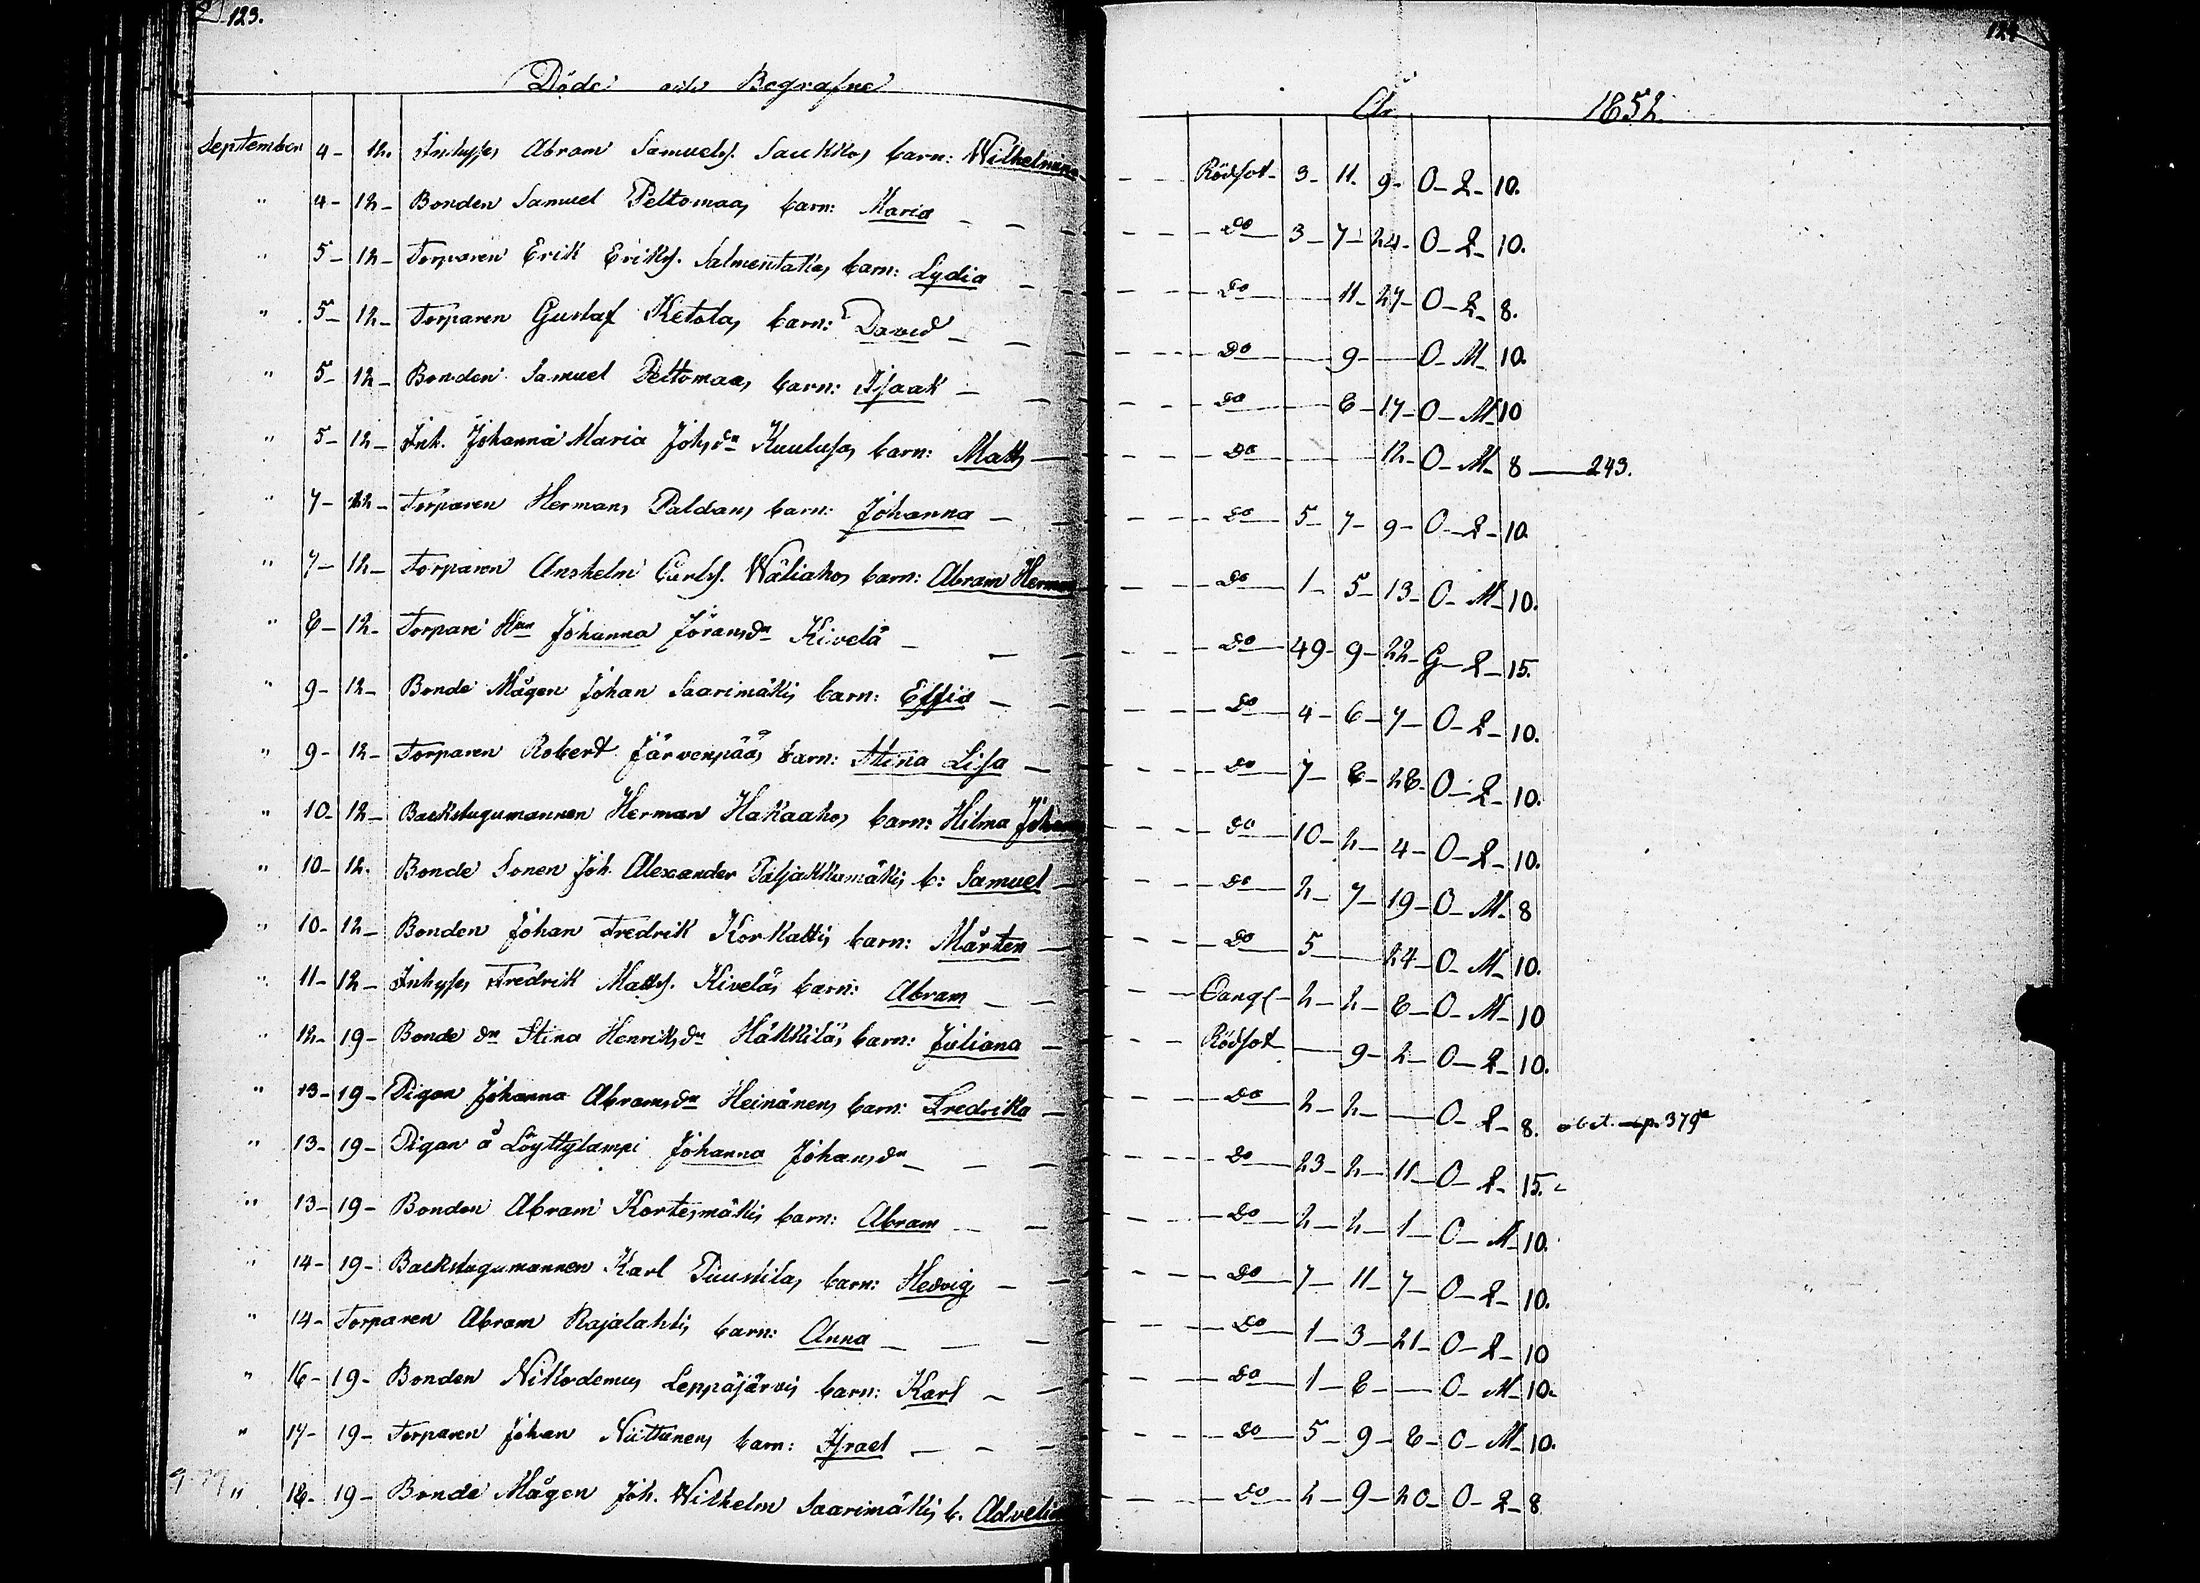 123. 124
Döde och Begrafne År 1852.
September 4- 12. Inhyses Abram Samuels. Saukkos barn: Wilhelmina - - Rödsot- 3- 11- 9- O- Q- 10.
" 4- 12- Bonden Samuel Peltomaas barn: Maria - - - - do 3- 7- 24- O- Q- 10.
" 5- 12- Torparen Erik Eriks. Salmentakas barn: Lydia - - - - do 11- 27- O- Q- 8.
" 5- 12- Torparen Gustaf Ketolas barn: David - - - - do 9- O- M- 10.
" 5- 12- Bonden Samuel Peltomaas barn: Isaak - - - - do 8- 17- O- M- 10
" 5- 12- Inh. Johanna Maria Johsdr Kuulusas barn: Matts - - do 12- O- M- 8 243.
" 7- 12- Torparen Hermans Paldans barn: Johanna - - - - do 5- 7- 9- O- Q- 10.
" 7- 12- Torparen Anshelm Carls. Wäliahos barn: Abram Herman - - do 1- 5- 13- O- M- 10.
" 8- 12- Torpare Hun Johanna Jöransdr Kivelä - - - - do 49- 9- 22- G- Q- 15.
" 9- 12- Bonde Mågen Johan Saarimäkis barn: Effia - - - do 4- 6- 7- O- Q- 10.
" 9- 12- Torparen Robert Järvenpääs barn: Stina Lisa - - - do 7- 8- 28- O- Q- 10.
" 10- 12- Backstugumannen Herman Hakaahos barn: Hilma Johanna - - do 10- 2- 4- O- Q- 10.
" 10- 12. Bonde Sonen Joh. Alexander Patjakkamäkis b: Samuel - - do 2- 7- 19- O- M- 8
" 10- 12- Bonden Johan Fredrik Korkattis barn: Mårten - - do 5 24- O- M- 10.
" 11- 12- Inhyses Fredrik Matts. Kiveläs barn: Abram - - - 2- 2- 8- O- M- 10
" 12- 19- Bonde dr Stina Henriksdr Häkkiläs barn: Juliana - - Rödsot 9- 2- O- Q- 10.
" 13- 19- Pigan Johanna Abramsdr Heinänens barn: Fredrika - - do 2- 2- O- Q- 8. p. 379
" 13- 19- Pigan å Löyttylampi Johanna Johansdr - - - do 23- 2- 11- O- Q- 15.
" 13- 19- Bonden Abram Kortesmäkis barn: Abram - - - do 2- 2- 1- O- M- 10.
" 14- 19- Backstugumannen Karl Puustilas barn: Hedvig - - do 7- 11- 7- O- Q- 10.
" 14- Torparen Abram Rajalahtis barn: Anna - - - do 1- 3- 21- O- Q- 10
" 16- 19- Bonden Nikodemus Leppäjärvis barn: Karl - - - do 1- 8- O- M- 10.
" 17- 19- Torparen Johan Niittunens barn: Israel - - - do 5- 9- 8- O- M- 10.
" 18- 19- Bonde Mågen Joh. Wilhelm Saarimäkis b. - - do 2- 9- 20- O- Q- 8